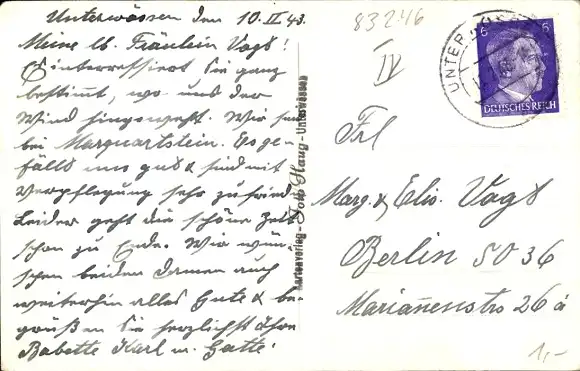 Unterwössen den 10.IX.43.
Meine lb. Fräulein Vogt!
Es interressiert Sie ganz
bestimmt, wo uns der
Wind hingeweht. Wir sind
bei Marquartstein. Es ge-
fällt uns gut & sind mit
Verpflegung sehr zufrieden
Leider geht die schöne Zeit
schon zu Ende. Wir wün-
schen beiden Damen auch
weiterhin alles Gute & be-
grüßen Sie herzlichst Ihre
Babette Karl u. Gatte!
Kartenverlag - Foto Haug - Unterwössen
83246
IV
UNTERWÖSSEN
6 6
DEUTSCHES REICH
Frl
Marg. & Elis. Vogt
Berlin SO 36
Mariannenstr 26 a
1,-